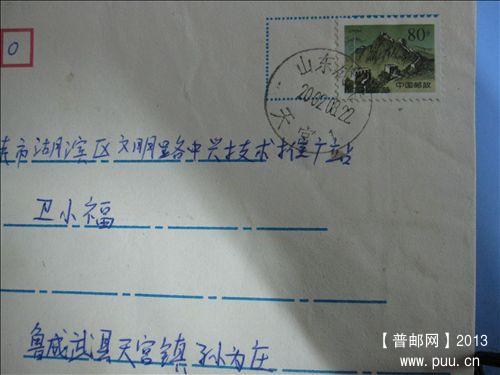 0
80分
中国邮政
山东
2002.08.22
天宫 1
市湖滨区文明路中兴技术推广站
卫小福
鲁成武县天宫镇 孙为在
【普邮网】2013
www.puu.cn